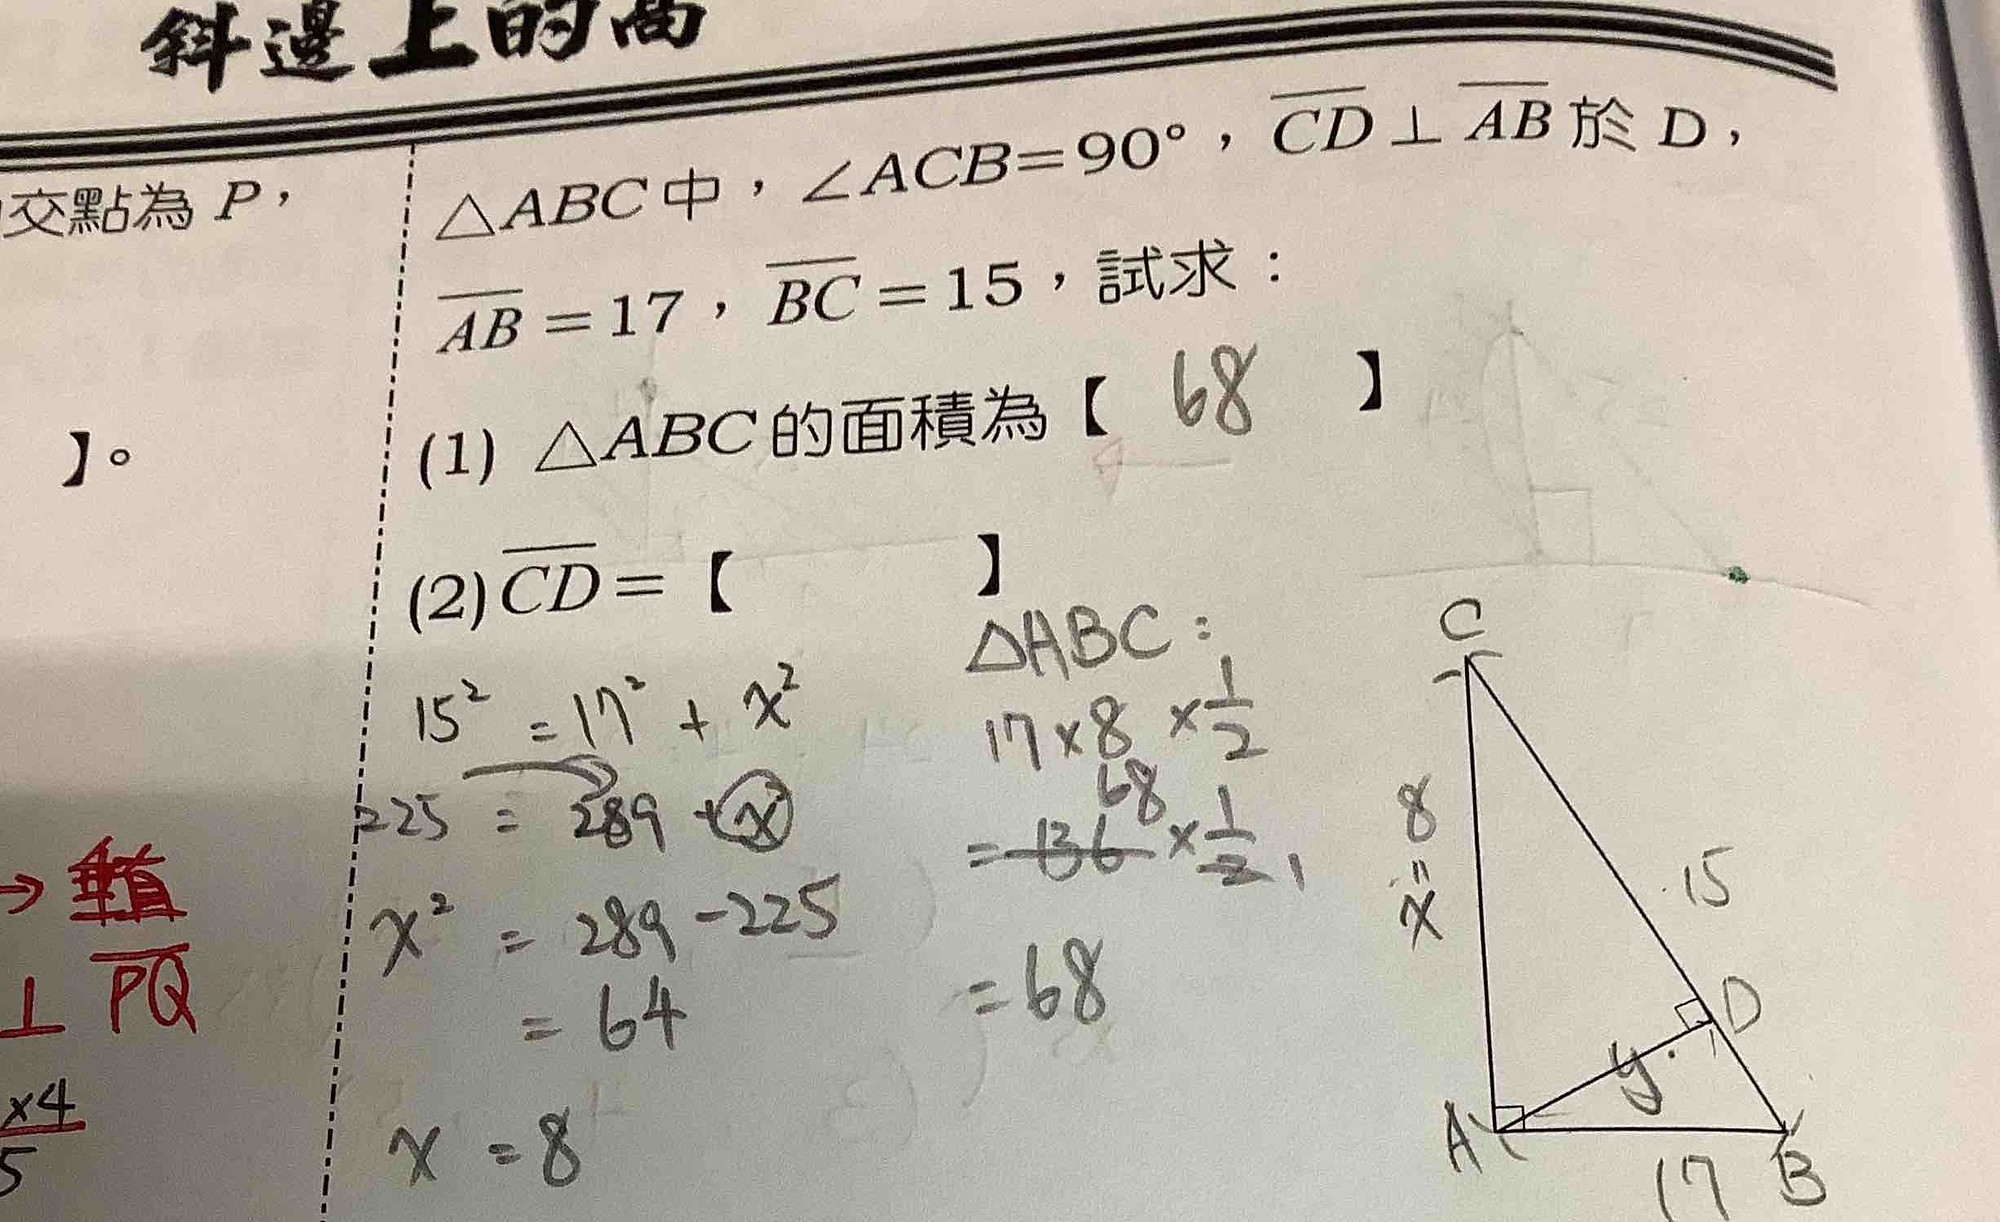 斜邊上的高
交點為 P，
】。
→ 垂直
⊥ PQ
×4
5
△ABC中，∠ACB=90°，CD⊥AB於 D，
AB=17，BC=15，試求：
(1) △ABC的面積為【 68 】
(2) CD=【 】
15² = 17² + x²
225 = 289 + x²
x² = 289-225
= 64
x = 8
△ABC：
17×8 ×1/2
68
= 136 ×1/2 1
= 68
C
8
"
x
15
D
y
A
17
B